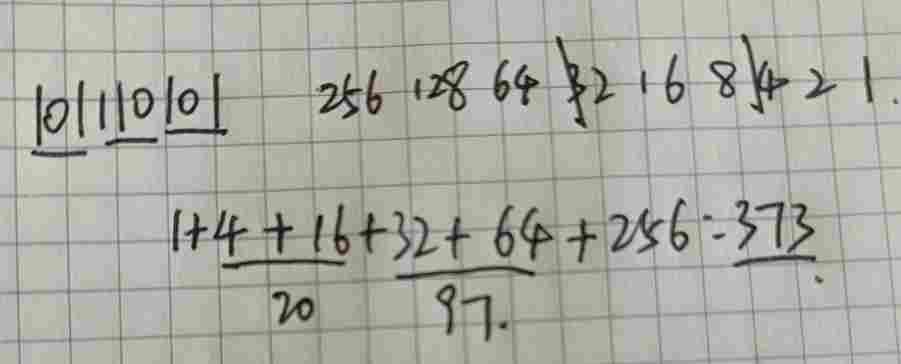 101110101 256 128 64 32 16 8 4 2 1.
1+4+16+32+64+256=373.
20 97.